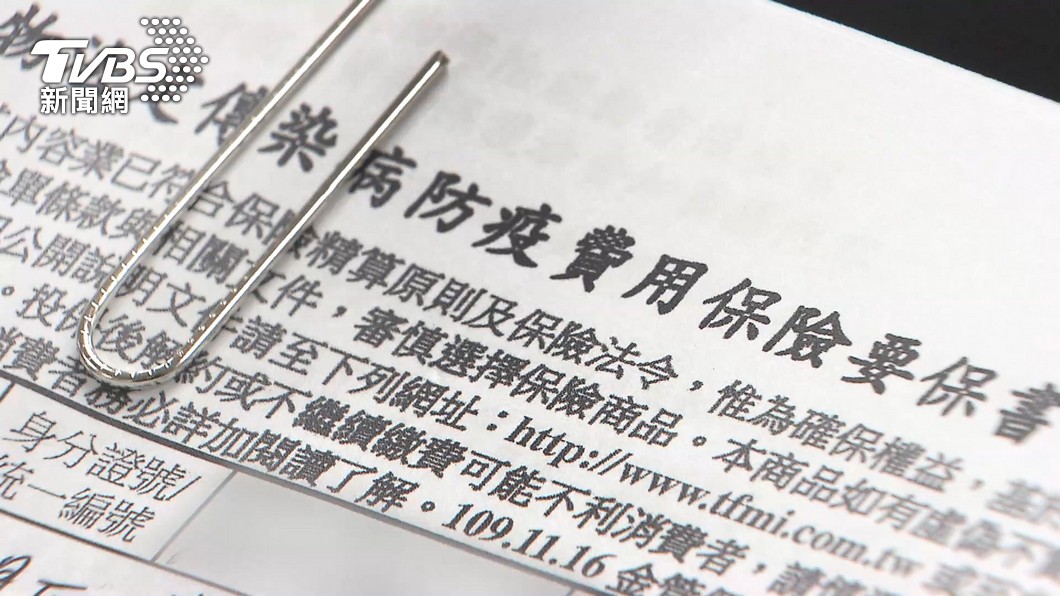 TVBS
新聞網
傳染病防疫費用保險要保書
內容業已符合保險精算原則及保險法令,惟為確保權益,基
單條款與相關文件,審慎選擇保險商品。本商品如有虛偽不
公開說明文件請至下列網址:http://www.tfmi.com.tw
。投保後解約或不繼續繳費可能不利消費者,請
消費者務必詳加閱讀了解。109.11.16 金管
身分證號/
統一編號